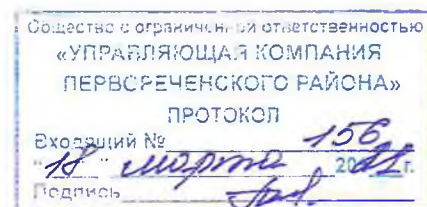 Общество с ограниченной ответственностью
«УПРАВЛЯЮЩАЯ КОМПАНИЯ
ПЕРВОРЕЧЕНСКОГО РАЙОНА»
ПРОТОКОЛ
Входящий № 156
"18" марта 2021 г.
Подпись